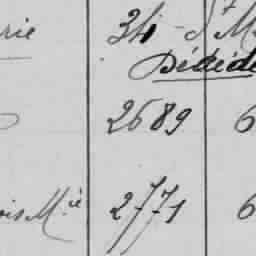 rie 34 - St M
Décédé
2689 6
ois Mie 2771 6